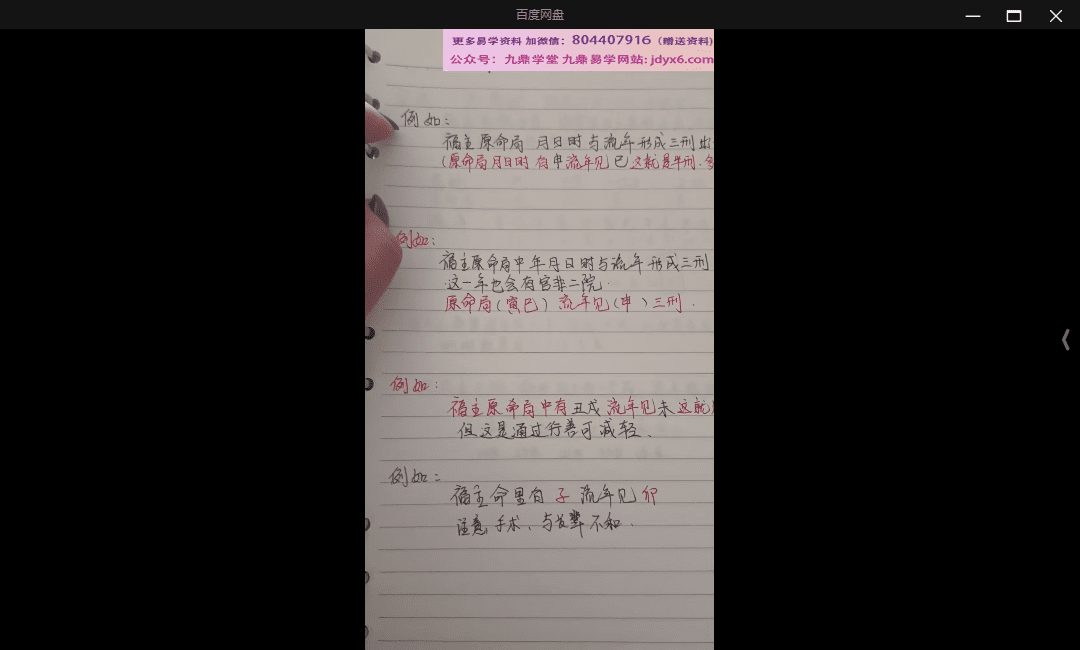 百度网盘
更多易学资料 加微信：804407916（赠送资料)
公众号：九鼎学堂 九鼎易学网站: jdyx6.com
例如：
福主原命局 月日时与流年形成三刑出
(原命局月日时 有申流年见巳这就是半刑.
例如：
福主原命局中年月日时与流年形成三刑
这一年也会有官非二院.
原命局(寅巳) 流年见(申) 三刑.
例如：
福主原命局中有丑戌流年见未这就
但这是通过行善可减轻、
例如：
福主命里有子 流年见卯
注意, 手术、与长辈不和.